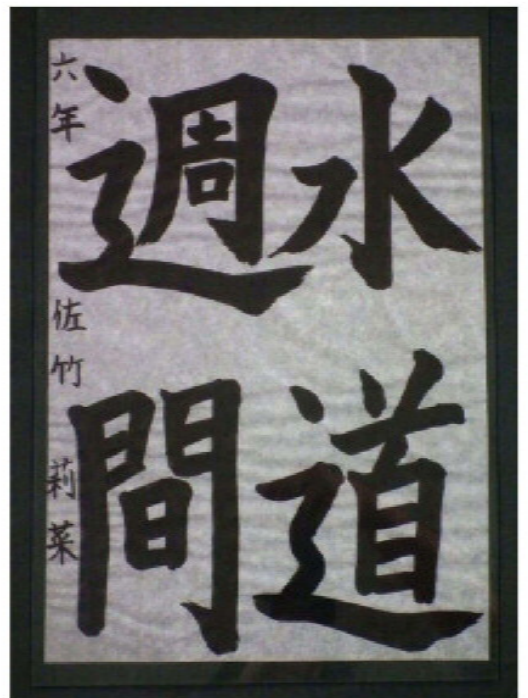 水道
週間
六年 佐竹 莉菜